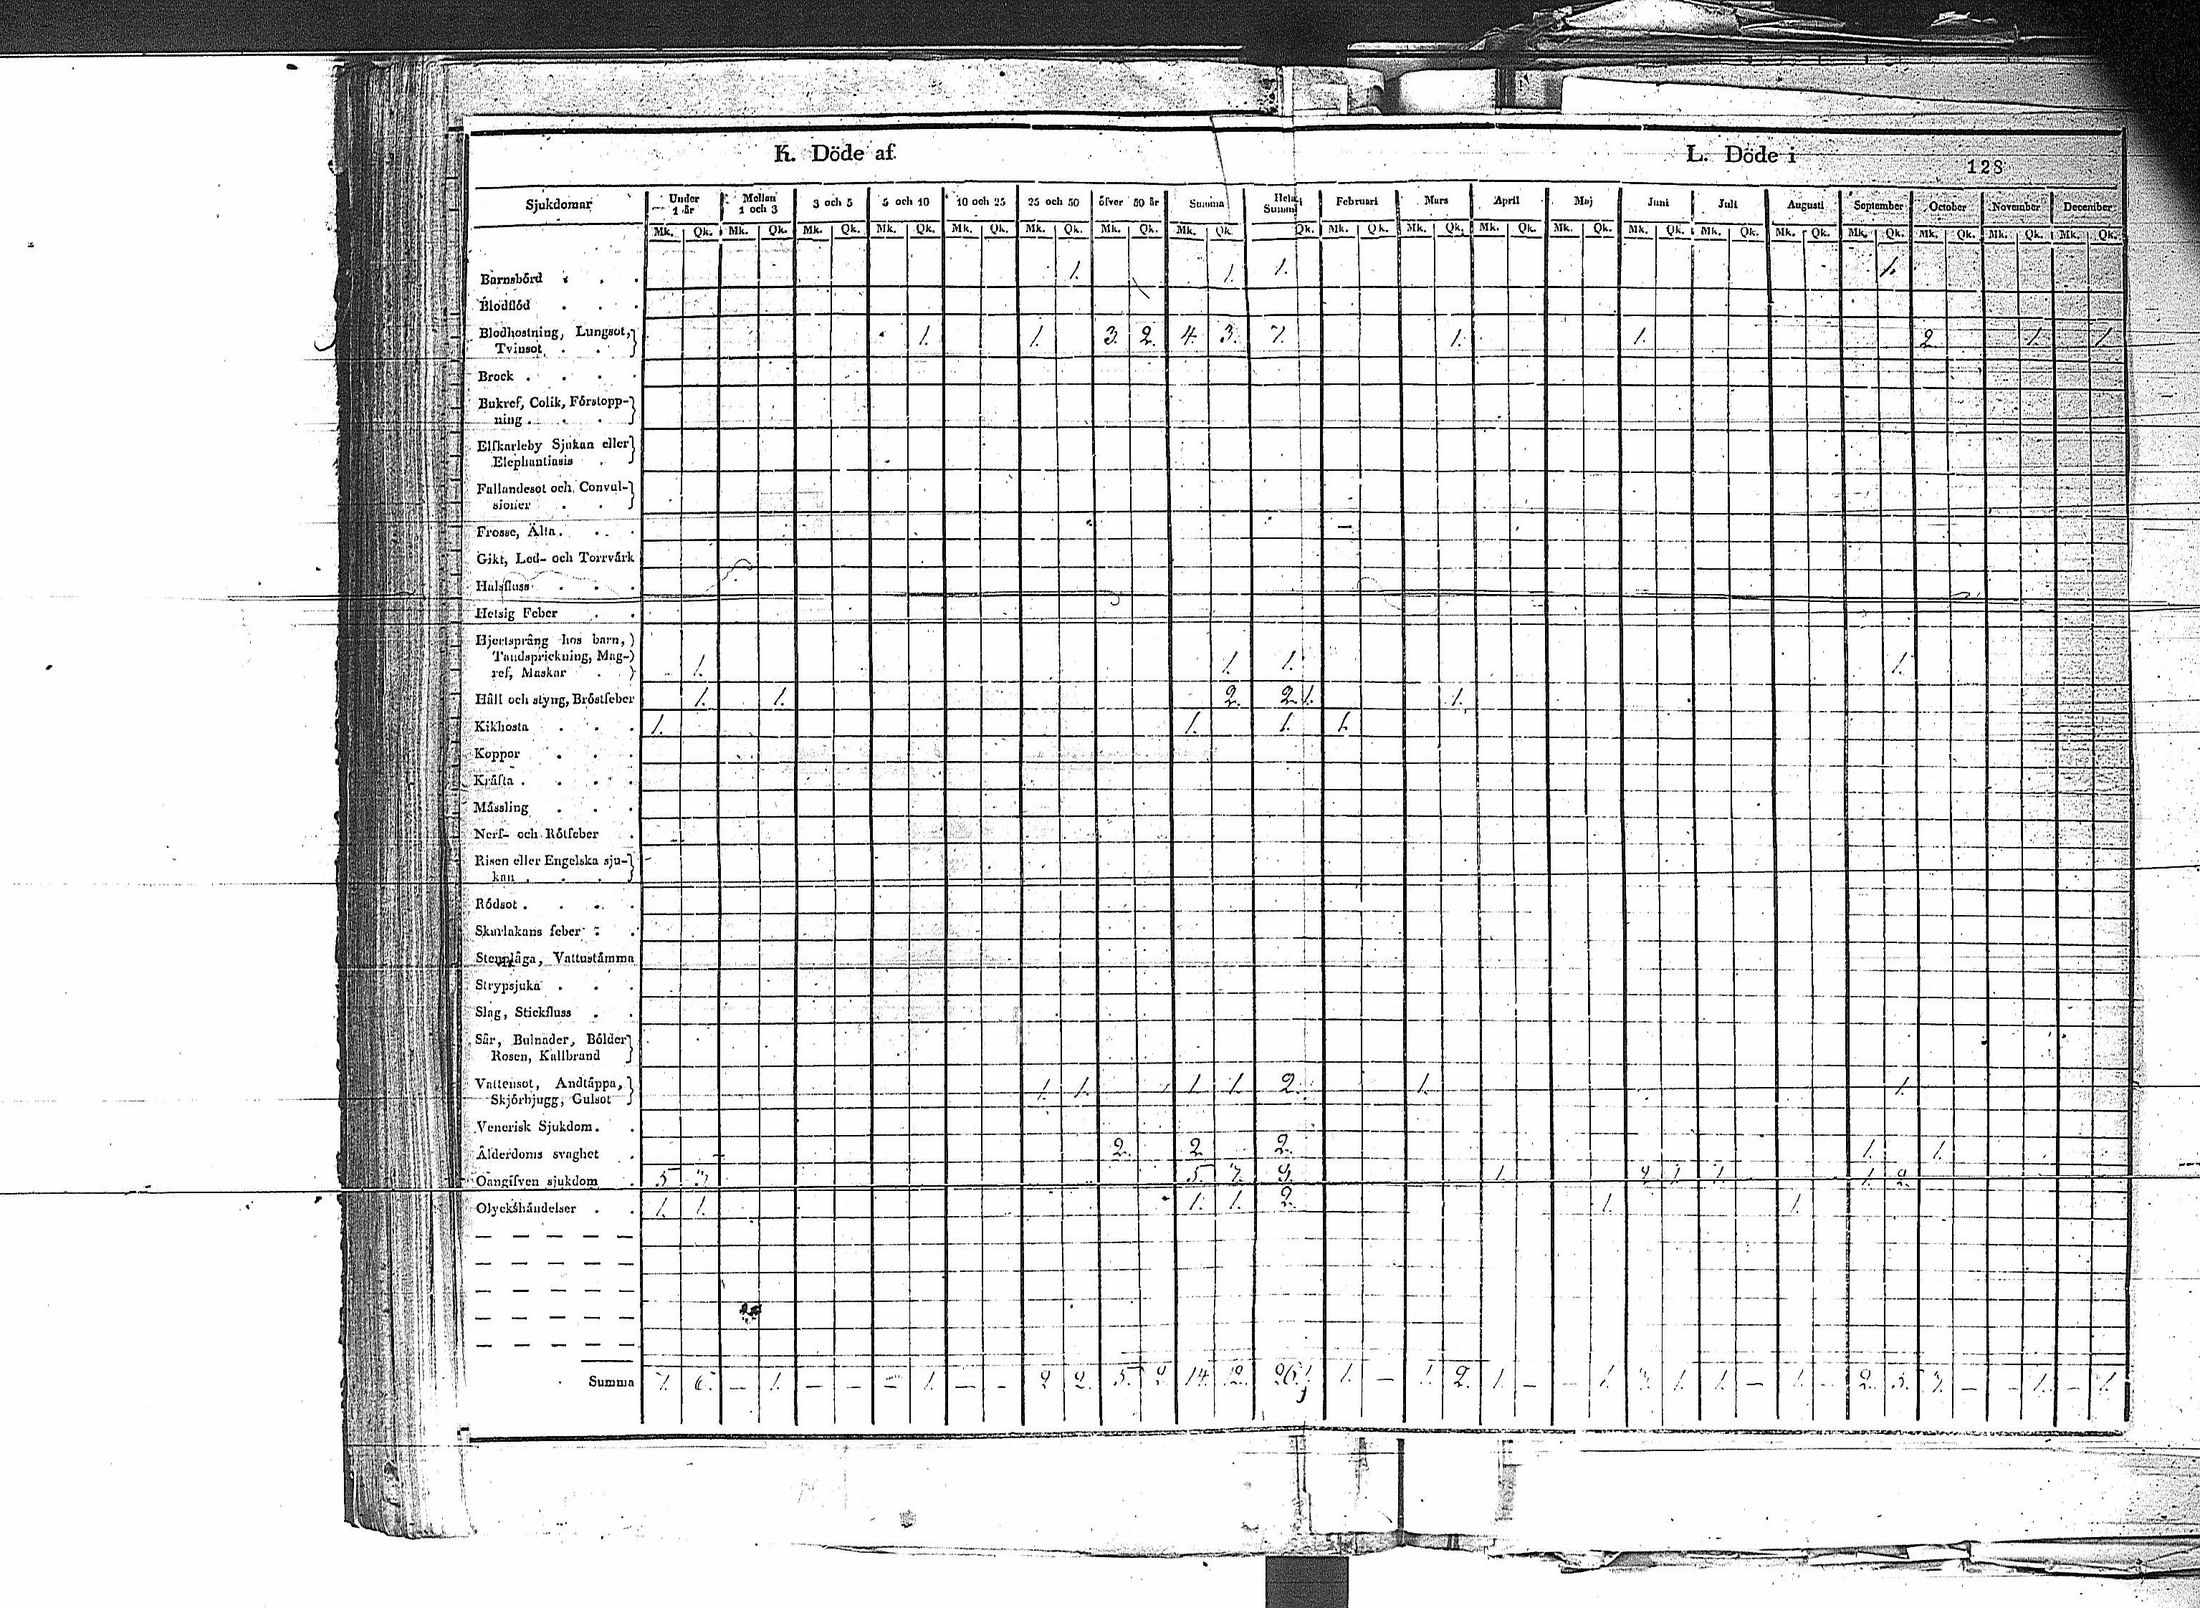 K. Döde af.
L. Döde i
128
Sjukdomar Under 1 år Mellan 1 och 3 3 och 5 5 och 10 10 och 25 25 och 50 öfver 50 år Summa Hela Summ Februari Mars April Maj Juni Juli Augusti September October November December
Mk. Qk. Mk. Qk. Mk. Qk. Mk. Qk. Mk. Qk. Mk. Qk. Mk. Qk. Mk. Qk. Qk. Mk. Qk. Mk. Qk. Mk. Qk. Mk. Qk. Mk. Qk. Mk. Qk. Mk. Qk. Mk. Qk. Mk. Qk. Mk. Qk. Mk. Qk.
Barnsbörd 1. 1. 1. 1.
Blodflöd
Blodhostning, Lungsot,
Tvinsot 1. 1. 3. 2. 4. 3. 7. 1. 1. 2 1. 1
Brock
Bukref, Colik, Förstopp-
ning
Elfkarleby Sjukan eller
Elephantiasis
Fallandesot och Convul-
sioner
Frossa, Älta
Gikt, Led- och Torrvärk
Halsfluss
Hetsig Feber
Hjertsprång hos barn,
Tandsprickning, Mag-
ref, Maskar 1. 1. 1. 1.
Håll och styng, Bröstfeber 1. 1. 2. 2. 1. 1.
Kikhosta 1. 1. 1. 1.
Koppor
Kräfta
Mässling
Nerf- och Rötfeber
Risen eller Engelska sju-
kan
Rödsot
Skarlakans feber
Stenplåga, Vattustämma
Strypsjuka
Slag, Stickfluss
Sår, Bulnader, Bölder
Rosen, Kallbrand
Vattensot, Andtäppa,
Skjörbjugg, Gulsot 1. 1. 1. 1. 2. 1. 1.
Venerisk Sjukdom
Ålderdoms svaghet 2. 2 2. 1. 1.
Oangifven sjukdom 5 5. 1. 1. 1. 1. 2.
Olyckshändelser 1. 1. 1. 1. 2. 1. 1.
Summa 7. 6. — 1. — — — 1. — — 2 2. 5. 2 14. 12. 26. 1. 1. — 1. 2. 1. — — 1. 3. 1. 1. — 1. — 2. 5. 3. — — 1. — 1.